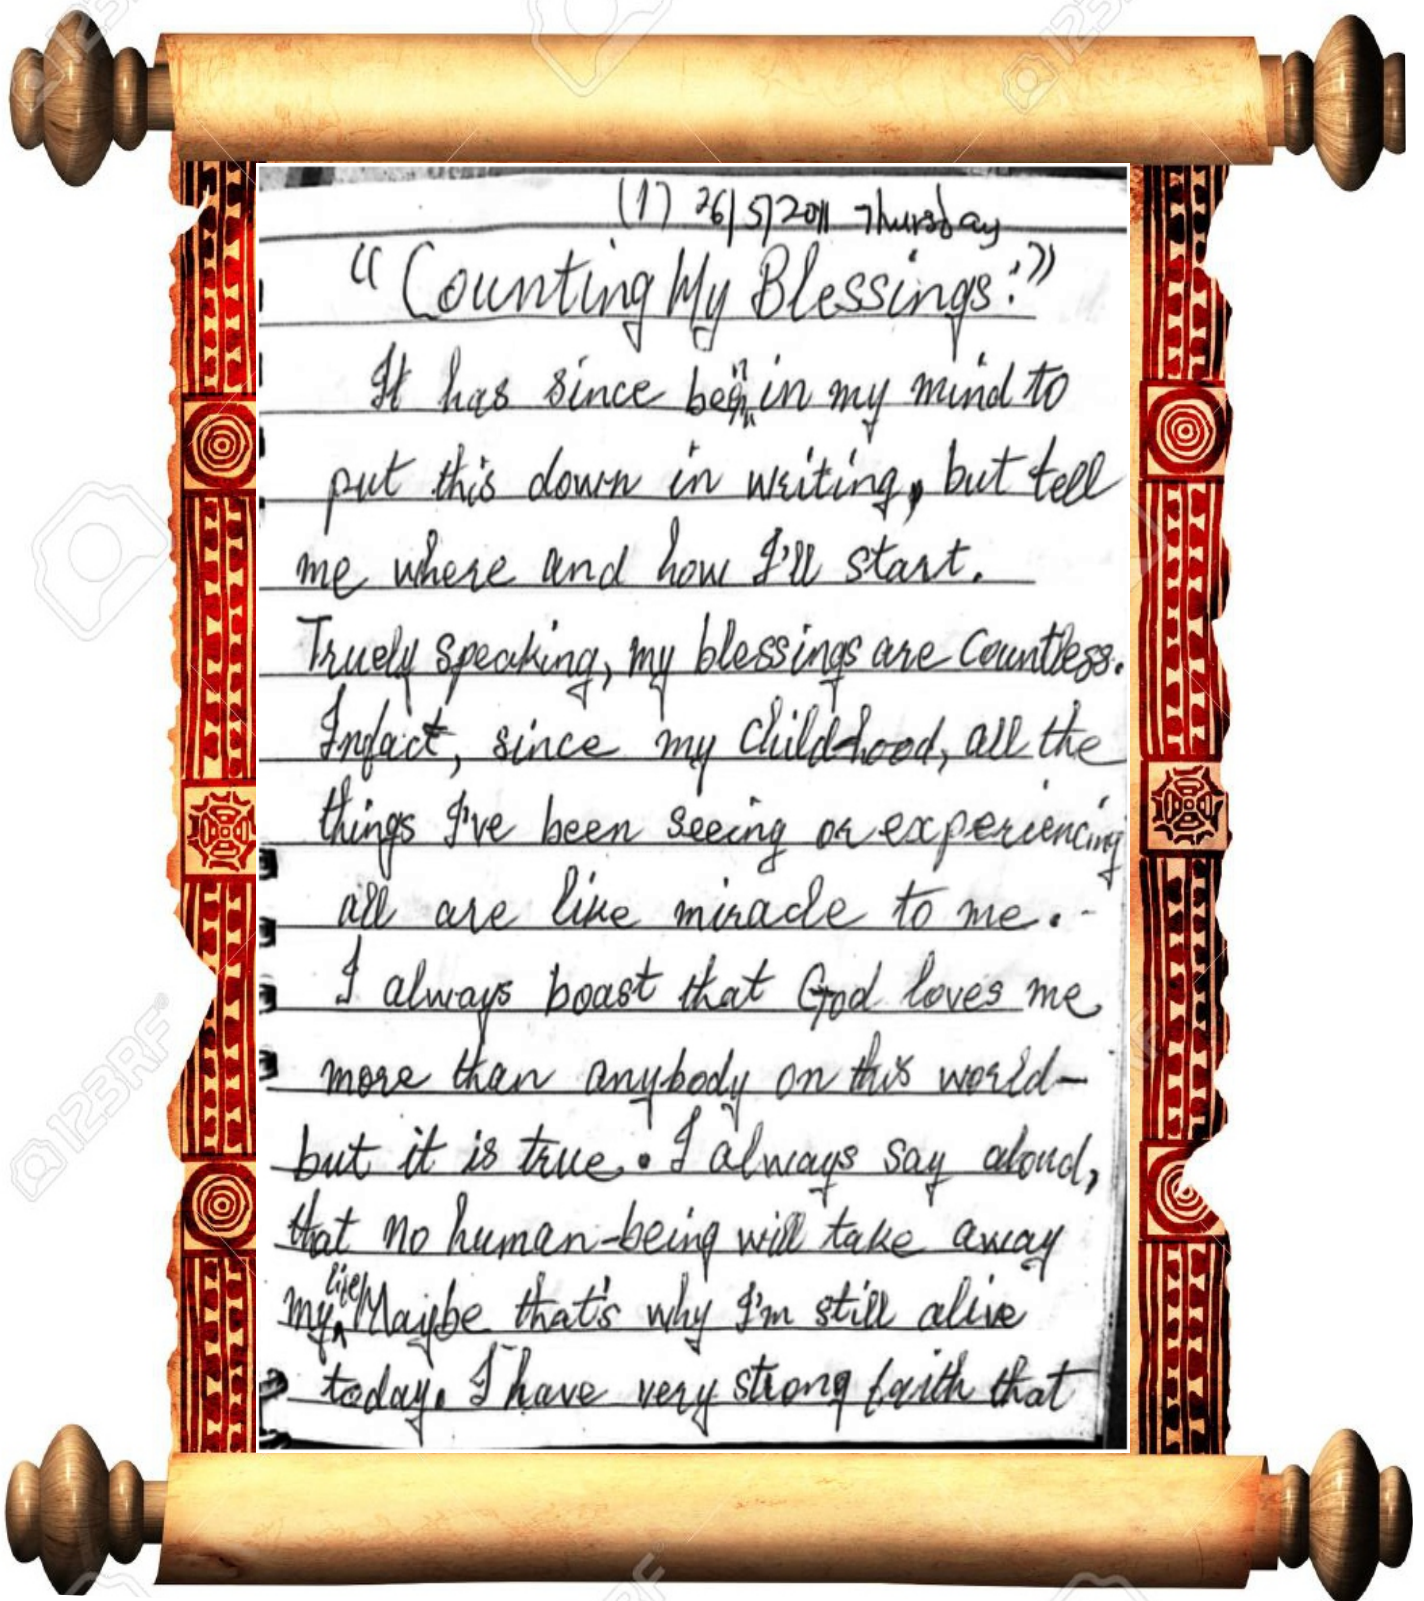 (1) 26/5/2011 Thursday
"Counting My Blessings:"
It has since been in my mind to
put this down in writing, but tell
me where and how I'll start.
Truely speaking, my blessings are countless.
Infact, since my childhood, all the
things I've been seeing or experiencing
all are like miracle to me.-
I always boast that God loves me
more than anybody on this world-
but it is true. I always say aloud,
that no human-being will take away
my life/Maybe that's why I'm still alive
today. I have very strong faith that
123RF
123RF
123RF
123RF